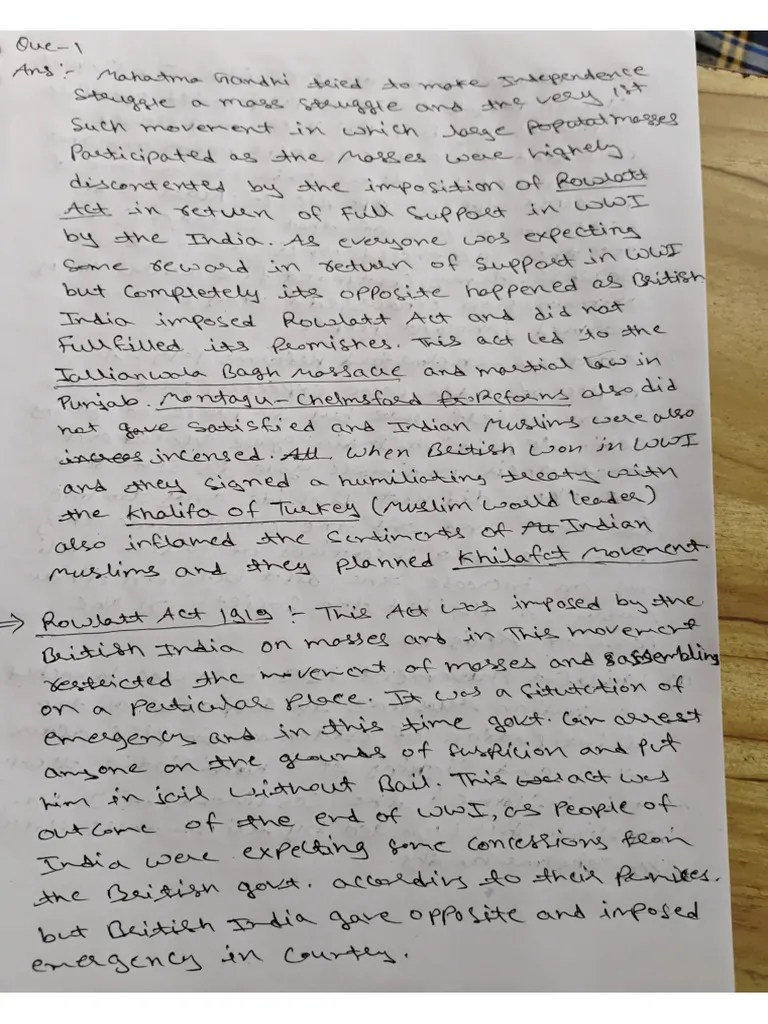 Que-1
Ans :- Mahatma Gandhi tried to make Independence
Struggle a mass struggle and the very 1st
Such movement in which large masses
Participated as the Masses were highely
discontented by the imposition of Rowlatt
Act in return of Full Support in WWI
by the India. As everyone was expecting
Some reward in return of Support in WWI
but Completely its opposite happened as British
India imposed Rowlatt Act and did not
Fullfilled its Promishes. This act led to the
Jallianwala Bagh Massacre and martial law in
Punjab. Montagu-Chelmsford Reforms also did
not gave Satisfied and Indian Muslims were also
incensed. When British won in WWI
and they signed a humiliating treaty with
the Khalifa of Turkey (Muslim world leader)
also inflamed the Sentiments of Indian
Muslims and they planned Khilafat Movement
⇒ Rowlatt Act 1919 :- This Act was imposed by the
British India on masses and in This movement
restricted the movement of masses and assembling
on a Perticular place. It was a Situtation of
emergency and in this time govt. can arrest
anyone on the grounds of Suspicion and Put
him in jail without Bail. This act was
outcome of the end of WWI, as People of
India were expecting Some concessions from
the British govt. according to their
but British India gave opposite and imposed
emergency in Countey.